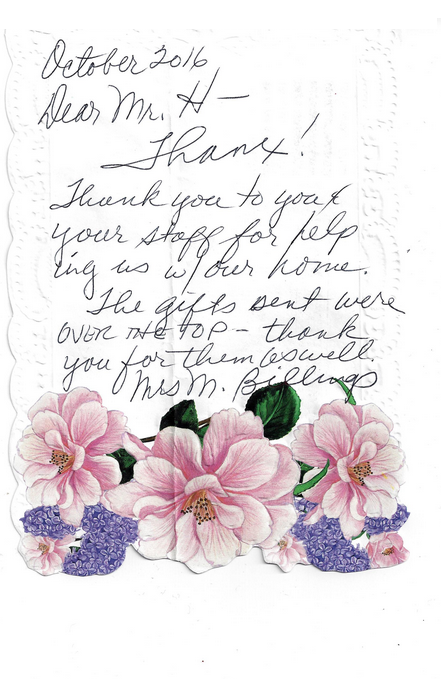 October 2016
Dear Mr. H—
Thanx!
Thank you to you &
your staff for help
ing us w/our home.
The gifts sent were
OVER THE TOP – thank
you for them aswell.
Mrs M. Billings